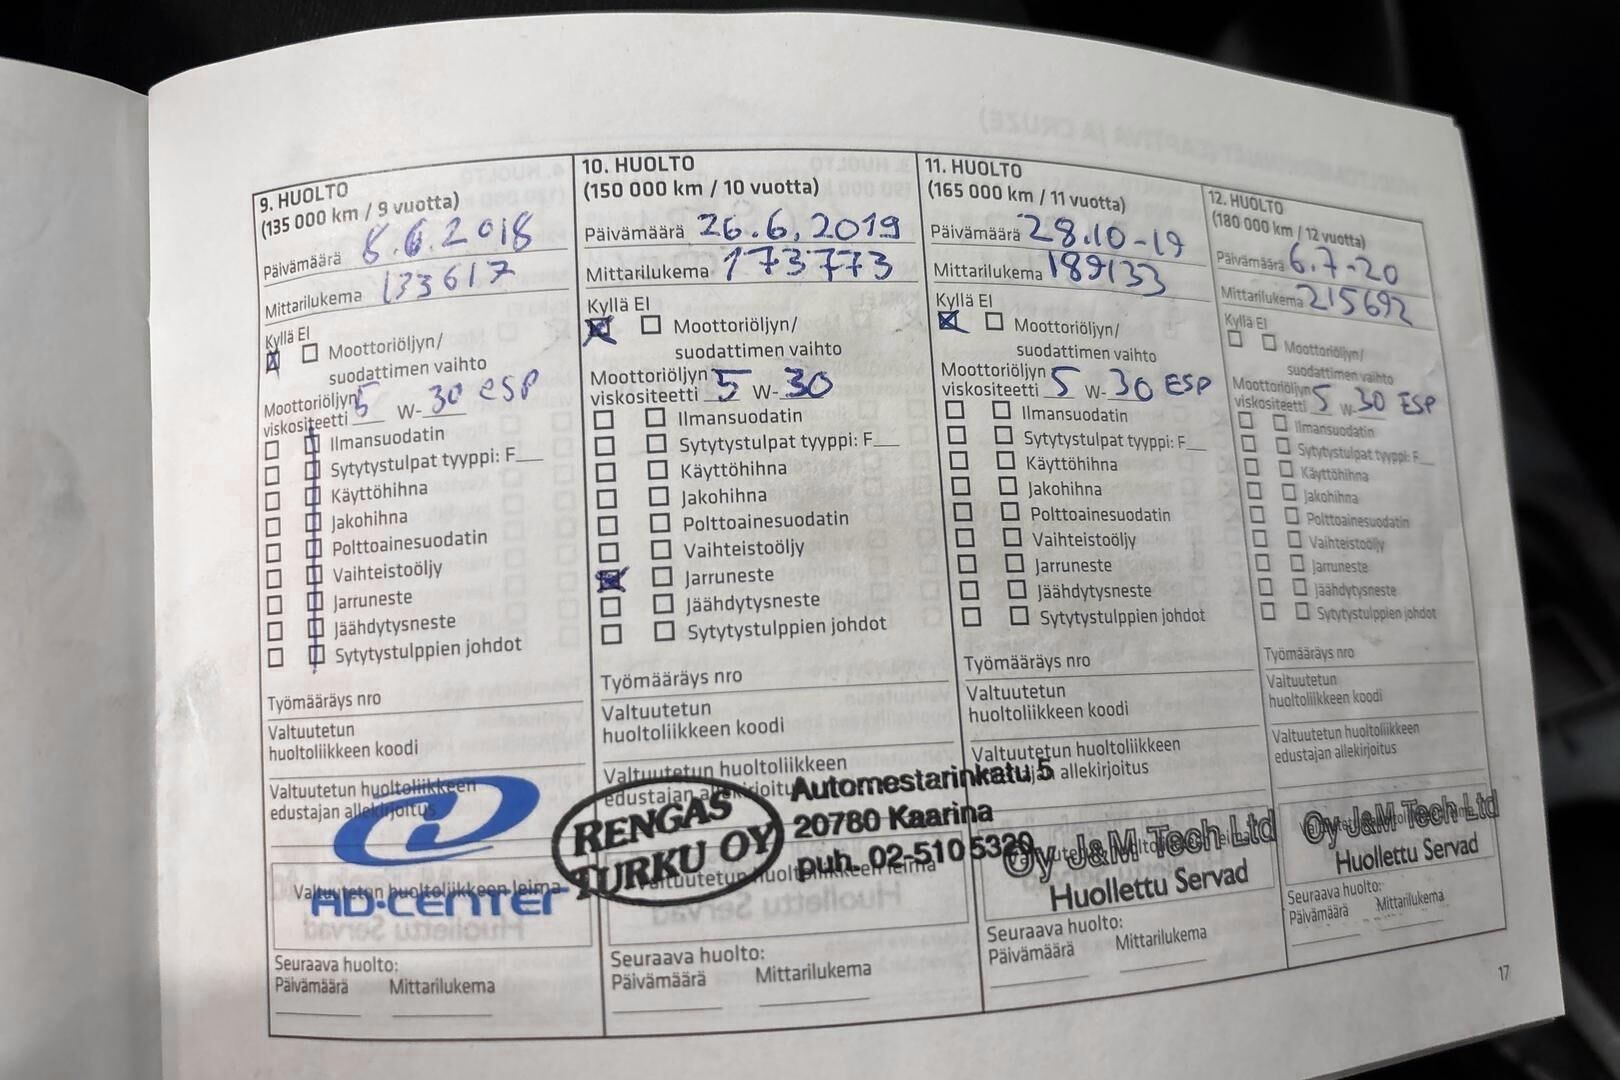 9. HUOLTO
(135 000 km / 9 vuotta)
Päivämäärä 8.6.2018
Mittarilukema 133617
Kyllä EI
Moottoriöljyn/
suodattimen vaihto
Moottoriöljyn
viskositeetti 5 W- 30 ESP
Ilmansuodatin
Sytytystulpat tyyppi: F__
Käyttöhihna
Jakohihna
Polttoainesuodatin
Vaihteistoöljy
Jarruneste
Jäähdytysneste
Sytytystulppien johdot
Työmääräys nro
Valtuutetun
huoltoliikkeen koodi
Valtuutetun huoltoliikkeen
edustajan allekirjoitus
Valtuutetun huoltoliikkeen leima
AD-CENTER
Seuraava huolto:
Päivämäärä Mittarilukema
10. HUOLTO
(150 000 km / 10 vuotta)
Päivämäärä 26.6.2019
Mittarilukema 173773
Kyllä EI
Moottoriöljyn/
suodattimen vaihto
Moottoriöljyn
viskositeetti 5 W- 30
Ilmansuodatin
Sytytystulpat tyyppi: F__
Käyttöhihna
Jakohihna
Polttoainesuodatin
Vaihteistoöljy
Jarruneste
Jäähdytysneste
Sytytystulppien johdot
Työmääräys nro
Valtuutetun
huoltoliikkeen koodi
Valtuutetun huoltoliikkeen
edustajan allekirjoitus
RENGAS
TURKU OY
Automestarinkatu 5
20780 Kaarina
puh. 02-5105329
Valtuutetun huoltoliikkeen leima
Seuraava huolto:
Päivämäärä Mittarilukema
11. HUOLTO
(165 000 km / 11 vuotta)
Päivämäärä 28.10-19
Mittarilukema 189133
Kyllä EI
Moottoriöljyn/
suodattimen vaihto
Moottoriöljyn
viskositeetti 5 W- 30 ESP
Ilmansuodatin
Sytytystulpat tyyppi: F__
Käyttöhihna
Jakohihna
Polttoainesuodatin
Vaihteistoöljy
Jarruneste
Jäähdytysneste
Sytytystulppien johdot
Työmääräys nro
Valtuutetun
huoltoliikkeen koodi
Valtuutetun huoltoliikkeen
allekirjoitus
Oy J&M Tech Ltd
Huollettu Servad
Seuraava huolto:
Päivämäärä Mittarilukema
12. HUOLTO
(180 000 km / 12 vuotta)
Päivämäärä 6.7-20
Mittarilukema 215692
Kyllä EI
Moottoriöljyn/
suodattimen vaihto
Moottoriöljyn
viskositeetti 5 W- 30 ESP
Ilmansuodatin
Sytytystulpat tyyppi: F__
Käyttöhihna
Jakohihna
Polttoainesuodatin
Vaihteistoöljy
Jarruneste
Jäähdytysneste
Sytytystulppien johdot
Työmääräys nro
Valtuutetun
huoltoliikkeen koodi
Valtuutetun huoltoliikkeen
edustajan allekirjoitus
Oy J&M Tech Ltd
Huollettu Servad
Seuraava huolto:
Päivämäärä Mittarilukema
17